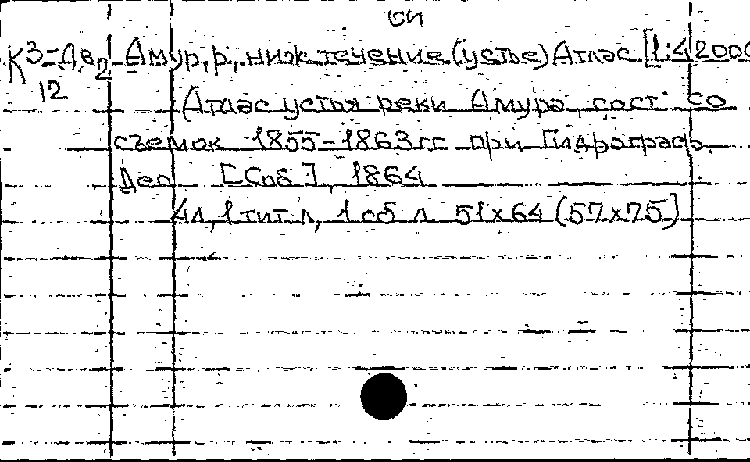 К3-Дв2 Амур, р., ниж. течение (устье) Атлас [1:42000
12
Атлас устья реки Амура, сост. со
съемок 1855-1863 гг при Гидрограф.
Деп. [Спб], 1864
4 л, 1 тит. л, 1 об л 51х64 (57х75)